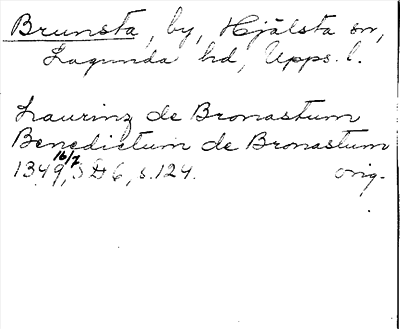 Brunsta, by, Hjälsta sn,
Lagunda hd, Upps. l.
Laurinz de Bronastum
Benedictum de Bronastum
1349 16/7, SD 6, s. 124. orig.